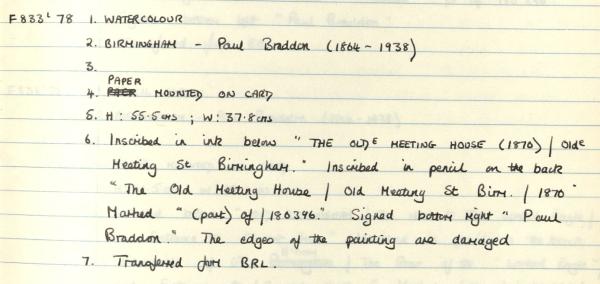 F833' 78 1. WATERCOLOUR
2. BIRMINGHAM - Paul Braddon (1864 - 1938)
3.
PAPER
4. MOUNTED ON CARD
5. H: 55.5cms ; W: 37.8cms
6. Inscribed in ink below " THE OLDE MEETING HOUSE (1870) | Olde
Meeting St Birmingham." Inscribed in pencil on the back
" The Old Meeting House | Old Meeting St Birm. | 1870 "
Marked " (part) of | 180396." Signed bottom right " Paul
Braddon." The edges of the painting are damaged
7. Transferred from BRL.